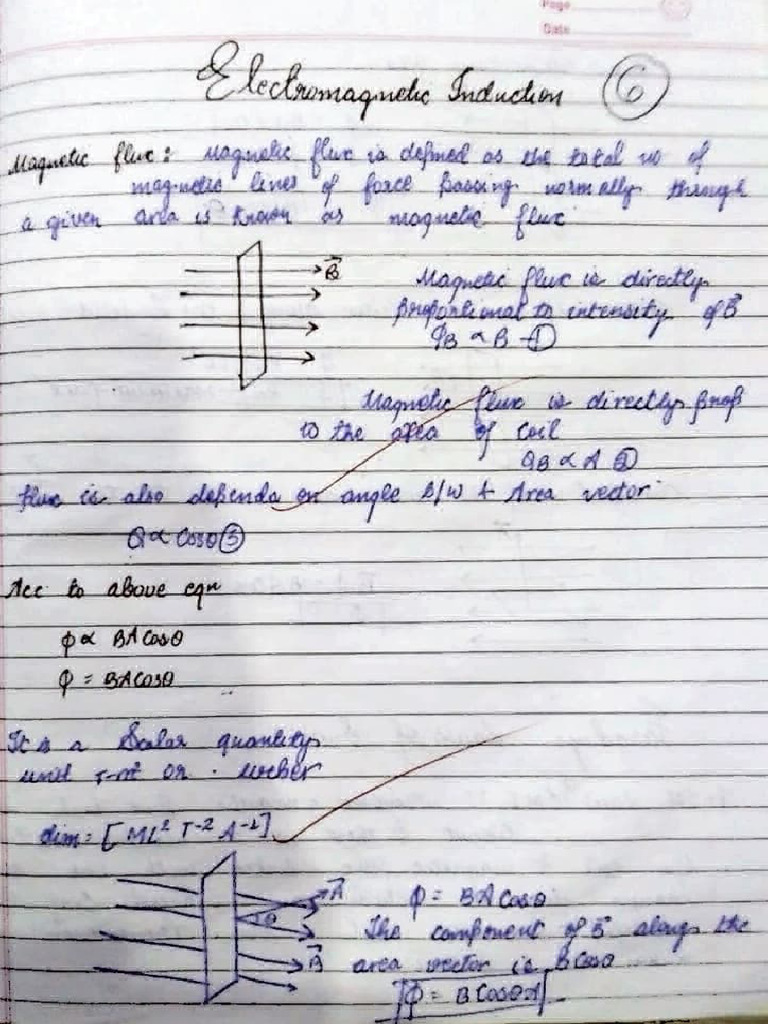 Page
Date
Electromagnetic Induction 6
Magnetic flux : Magnetic flux is defined as the total no of
magnetic lines of force passing normally through
a given area is known as magnetic flux
B⃗
Magnetic flux is directly
proportional to intensity of B⃗
ΦB ∝ B –①
Magnetic flux is directly prop
to the area of coil
ΦB ∝ A ②
flux is also depends on angle b/w & Area vector
Φ ∝ Cosθ ③
Acc to above eqn
φ ∝ BACosθ
φ = BACosθ
It is a Scalar quantity
unit T-m² or weber
dim = [ML² T⁻² A⁻¹]
A⃗
θ
B⃗
φ = BACosθ
The component of B⃗ along the
area vector is BCosθ
φ = BCosθA